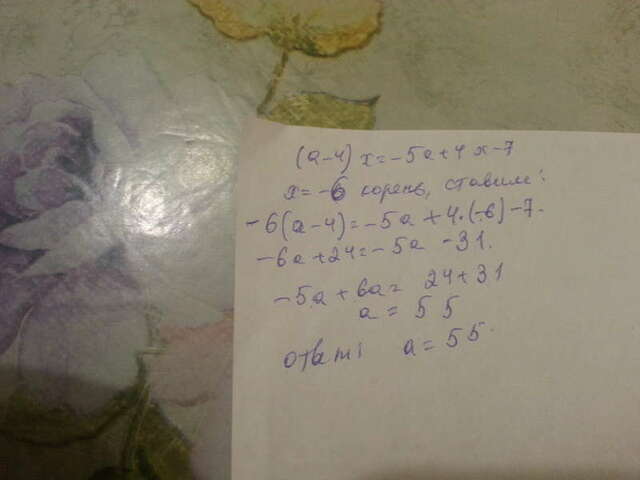 (a-4)x=-5a+4x-7
x=-6 корень, ставим:
-6(a-4)=-5a+4·(-6)-7.
-6a+24=-5a-31.
-5a+6a= 24+31
a=55
ответ: a=55.